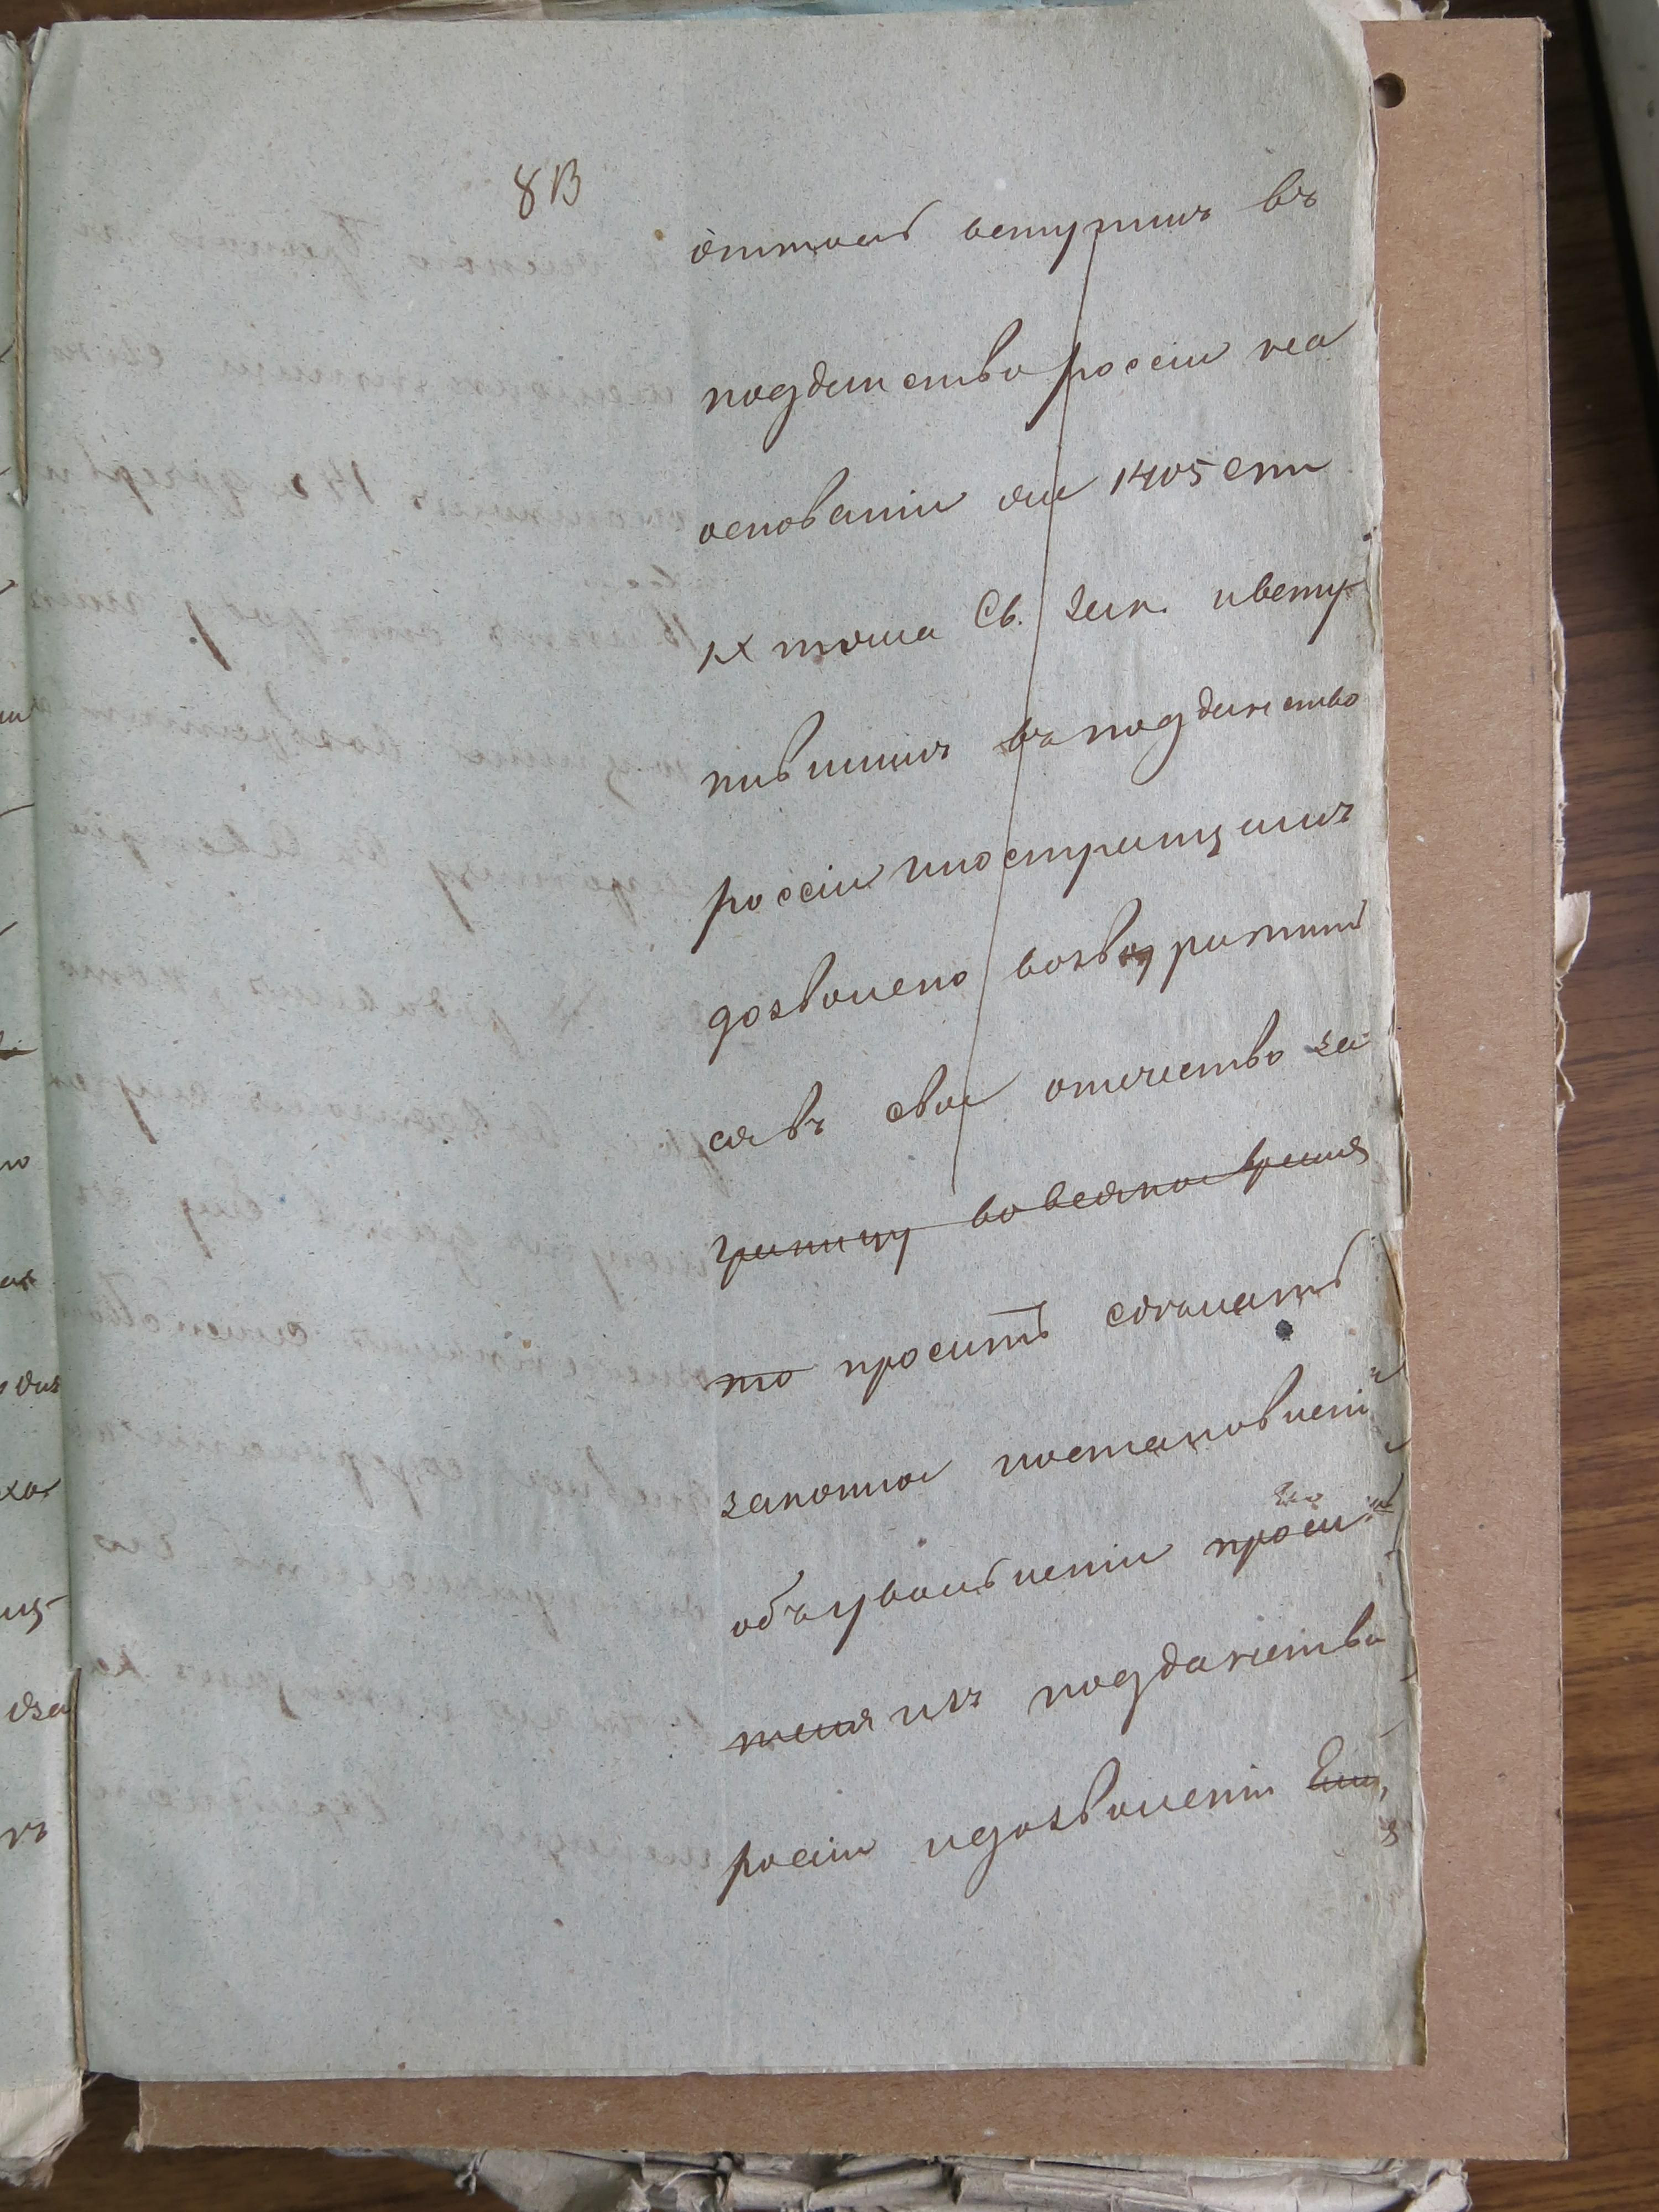 813
вступилъ въ
подданство россіи на
основаніи 1405 ст
IX тома Св. Зак. ивсту-
пившимъ въ подданство
россіи иностранцамъ
дозволено возвратит
ся въ свое отечество за
границу во всякое время
то проситъ сдѣлать
законное постановлені
объ увольненіи проси
его
теля изъ подданства
россіи идозволеніи Ему